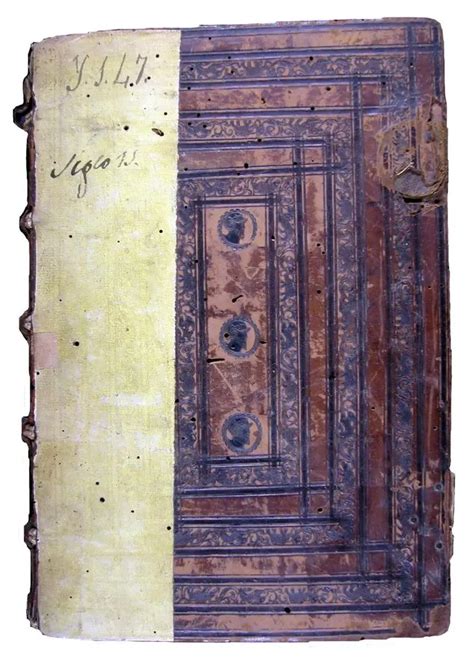 Y.I.47.
Siglo 15.